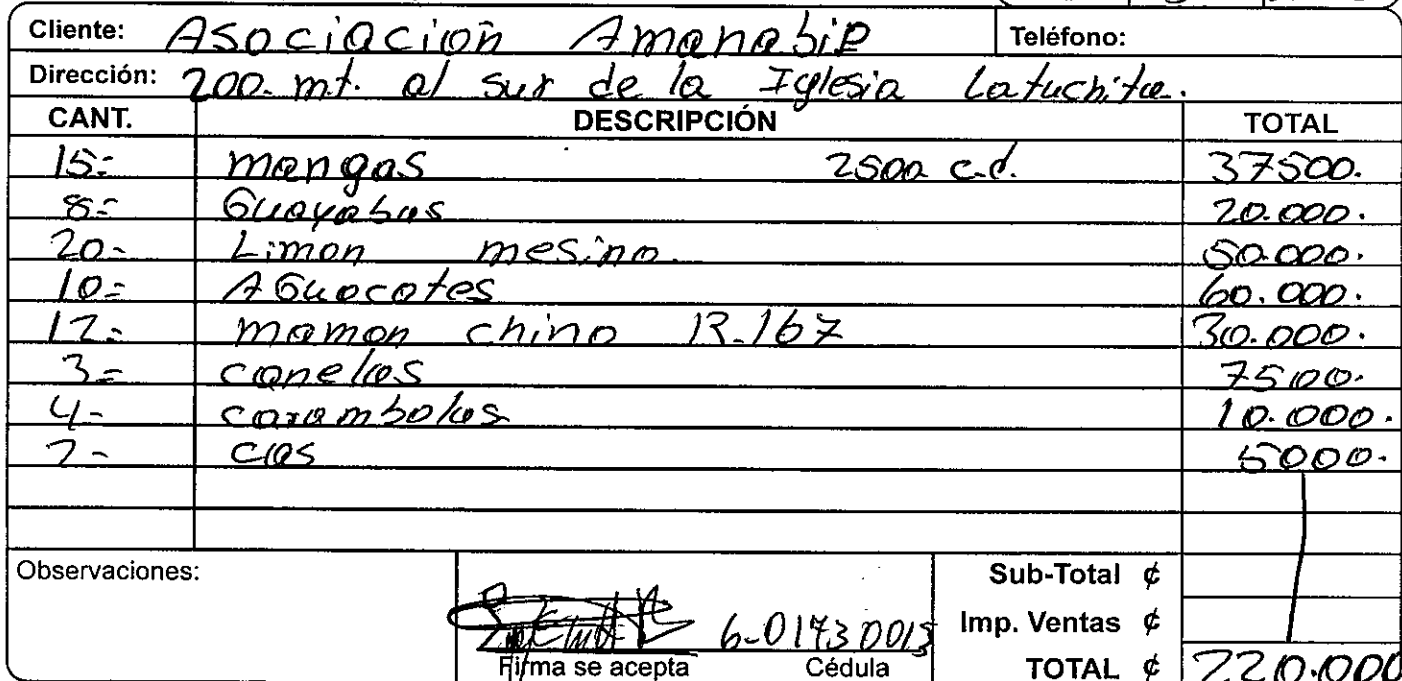 Cliente: Asociación Amanabip Teléfono:
Dirección: 200. mt. al sur de la Iglesia La tuchita.
CANT. DESCRIPCIÓN TOTAL
15= mangas 2500 c.d. 37500.
8= Guayabas 20.000.
20- Limon mesino. 50.000.
10= AGuacates 60.000.
12= mamon chino R.167 30.000.
3= canelas 7500.
4- carambolas 10.000.
2- cas 5000.
Observaciones: Sub-Total ¢
6-01430013 Imp. Ventas ¢
Firma se acepta Cédula TOTAL ¢ 220.000